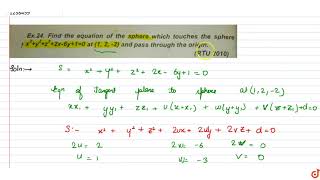 Ex.24. Find the equation of the sphere which touches the sphere
x²+y²+z²+2x-6y+1=0 at (1, 2, -2) and pass through the origin.
(RTU 2010)
Soln:→ S = x² + y² + z² + 2x - 6y + 1 = 0
Eqn of Tangent plane to sphere at (1, 2, -2)
xx₁ + yy₁ + zz₁ + u(x+x₁) + w(y+y₁) + v(z+z₁)+d=0
S:- x² + y² + z² + 2ux + 2wy + 2vz + d = 0
2u = 2 2v = -6 2w = 0
u = 1 v = -3 v = 0